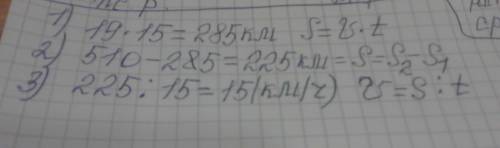 1) 19·15=285км S=v·t
2) 510-285=225км=S=S₂-S₁
3) 225:15=15(км/ч) v=S:t